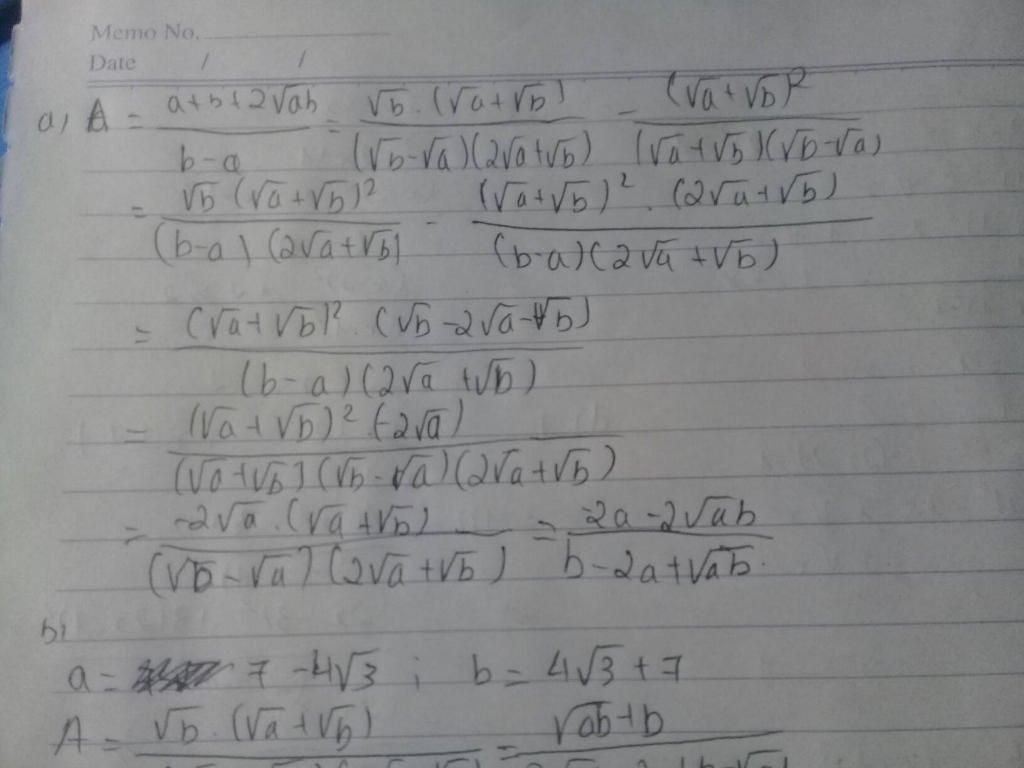 Memo No.
Date / /
a) A = (a+b+2√ab)/(b-a) = (√b.(√a+√b))/((√b-√a)(2√a+√b)) - ((√a+√b)²)/((√a+√b)(√b-√a))
= (√b (√a+√b)²)/((b-a)(2√a+√b)) - ((√a+√b)².(2√a+√b))/((b-a)(2√a+√b))
= ((√a+√b)².(√b-2√a-√b))/((b-a)(2√a+√b))
= ((√a+√b)²(-2√a))/((√a+√b)(√b-√a)(2√a+√b))
= (-2√a.(√a+√b))/((√b-√a)(2√a+√b)) = (-2a-2√ab)/(b-2a+√ab.)
b)
a = 7-4√3 ; b = 4√3+7
A = √b.(√a+√b) = √ab+b